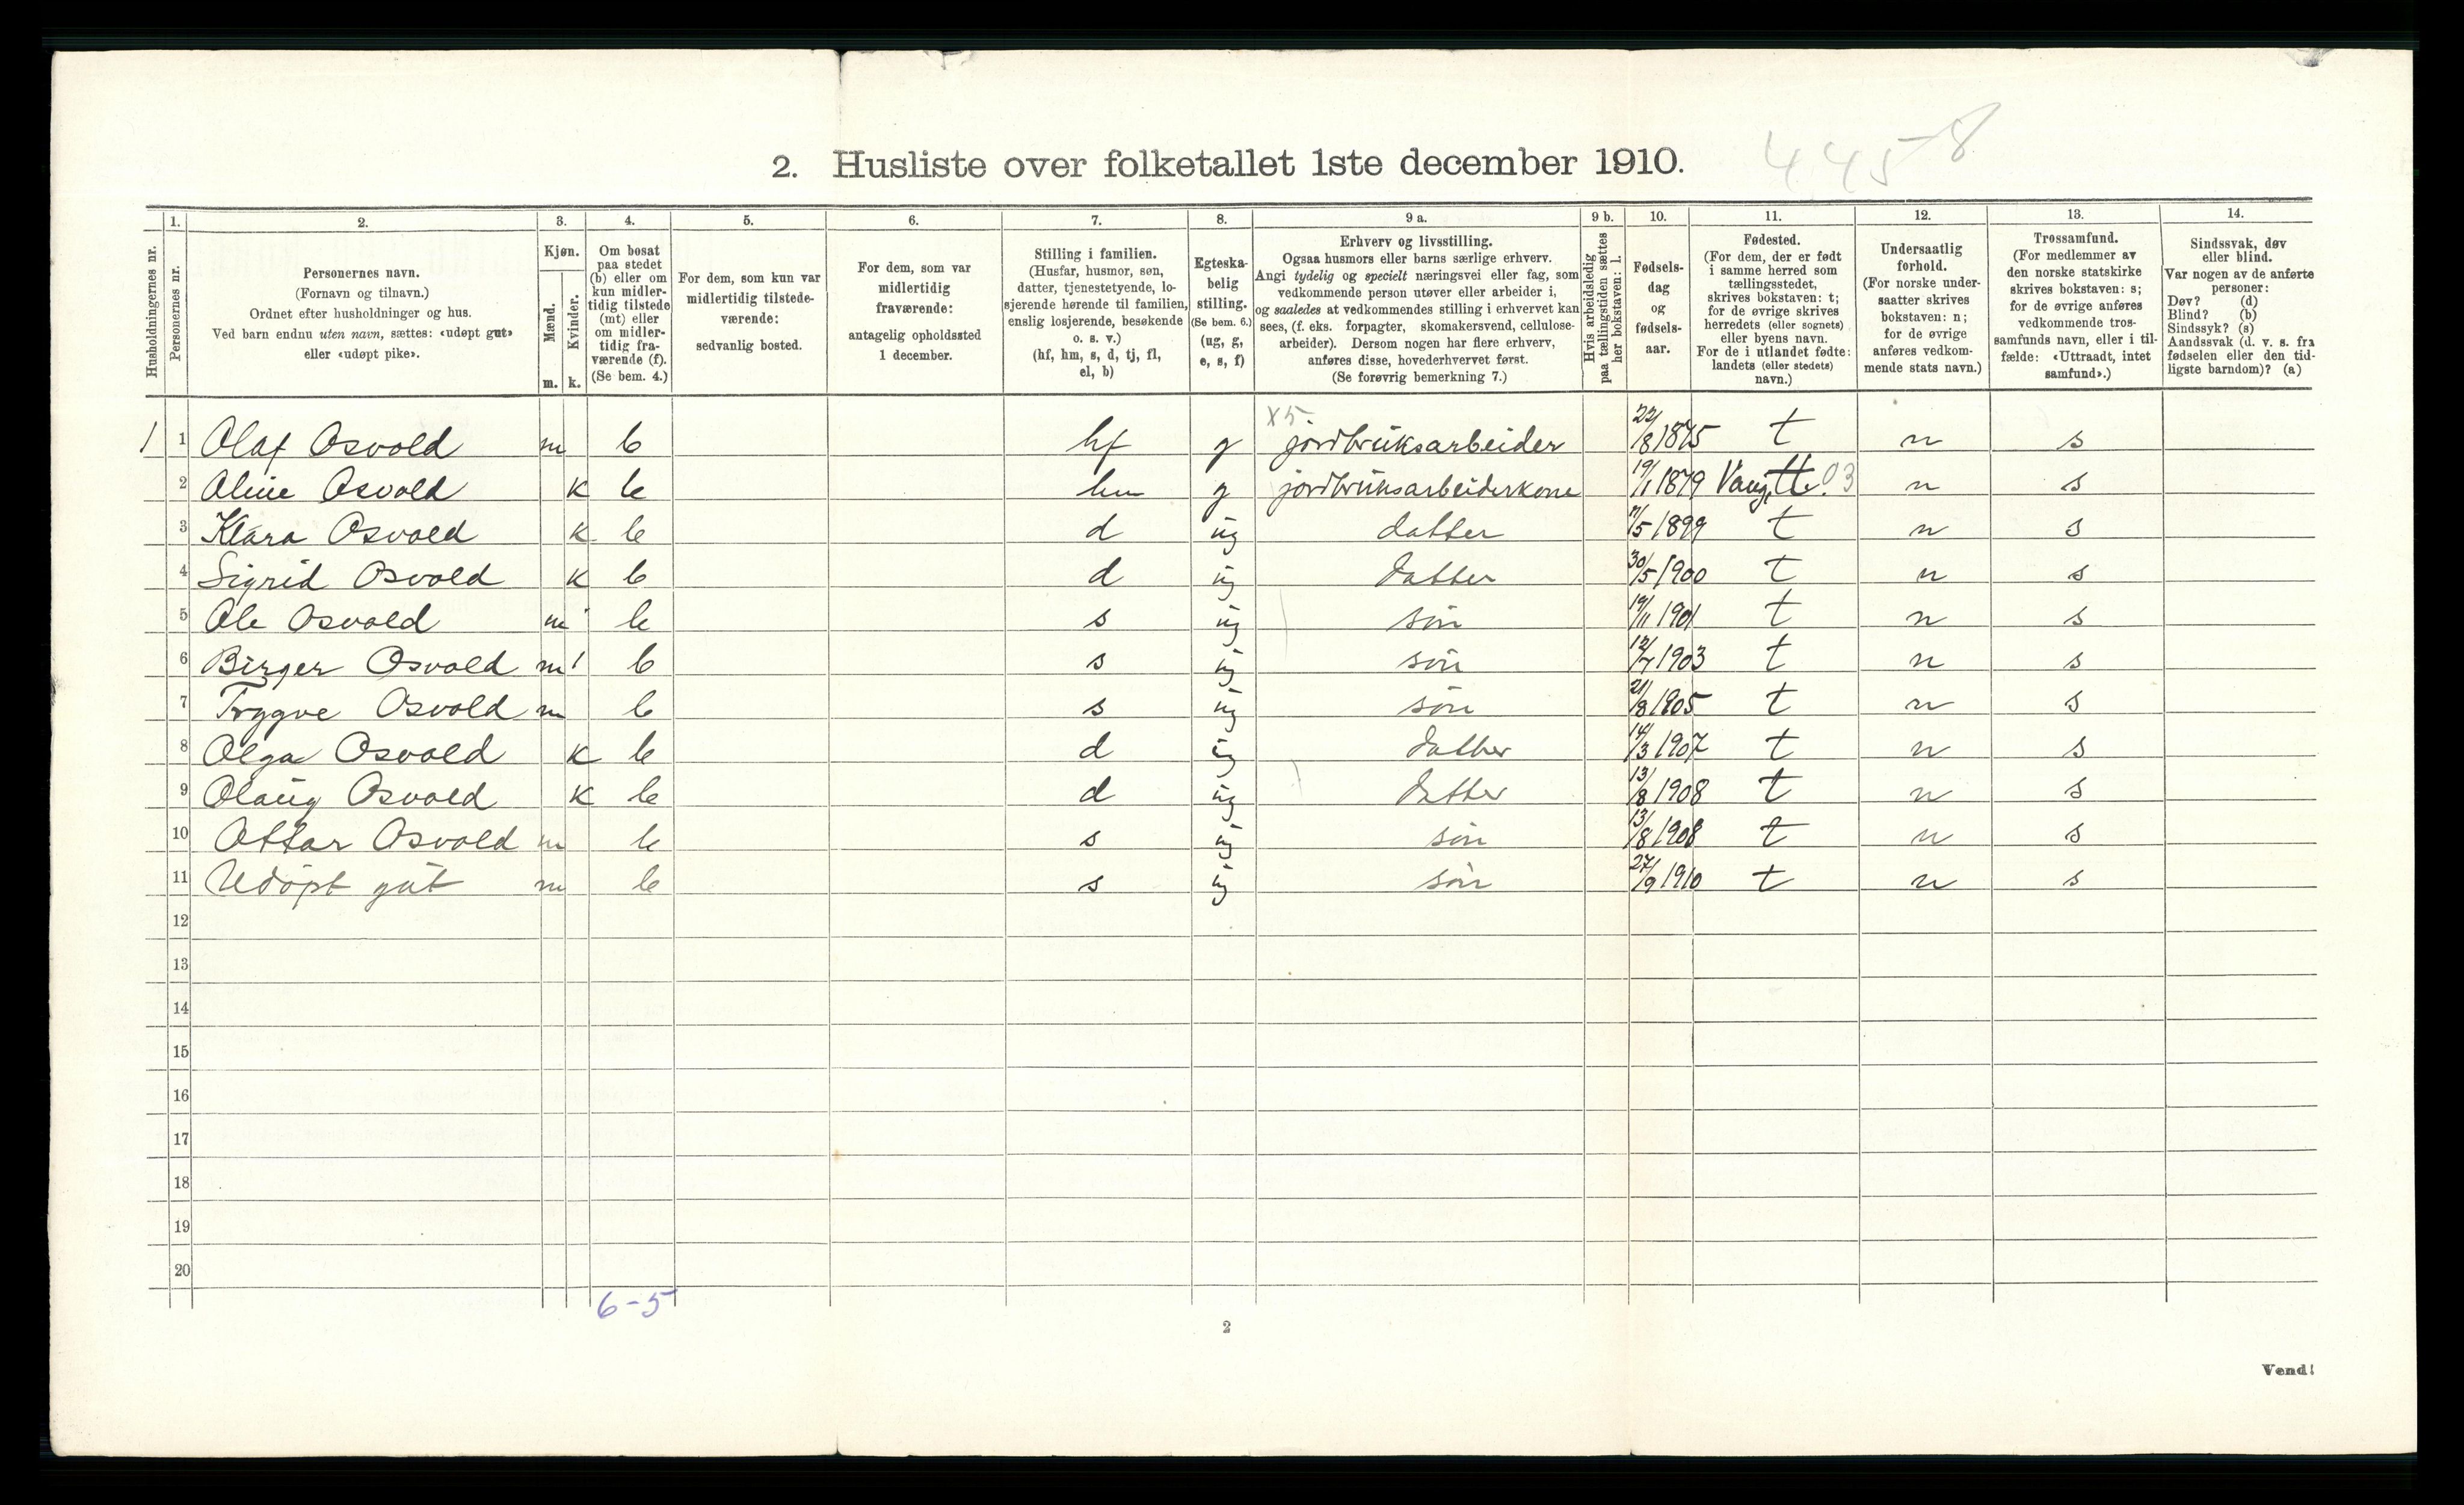 2. Husliste over folketallet 1ste december 1910.
445-8
Husholdningernes nr.
1. Personernes nr.
2. Personernes navn. (Fornavn og tilnavn.) Ordnet efter husholdninger og hus. Ved barn endnu uten navn, sættes: «udøpt gut» eller «udøpt pike».
3. Kjøn. Mænd. m. Kvinder. k.
4. Om bosat paa stedet (b) eller om kun midlertidig tilstede (mt) eller om midlertidig fraværende (f). (Se bem. 4.)
5. For dem, som kun var midlertidig tilstedeværende: sedvanlig bosted.
6. For dem, som var midlertidig fraværende: antagelig opholdssted 1 december.
7. Stilling i familien. (Husfar, husmor, søn, datter, tjenestetyende, losjerende hørende til familien, enslig losjerende, besøkende o. s. v.) (hf, hm, s, d, tj, fl, el, b)
8. Egteskabelig stilling. (Se bem. 6.) (ug, g, e, s, f)
9 a. Erhverv og livsstilling. Ogsaa husmors eller barns særlige erhverv. Angi tydelig og specielt næringsvei eller fag, som vedkommende person utøver eller arbeider i, og saaledes at vedkommendes stilling i erhvervet kan sees, (f. eks. forpagter, skomakersvend, cellulosearbeider). Dersom nogen har flere erhverv, anføres disse, hovederhvervet først. (Se forøvrig bemerkning 7.)
9 b. Hvis arbeidsledig paa tællingstiden sættes her bokstaven: l.
10. Fødselsdag og fødselsaar.
11. Fødested. (For dem, der er født i samme herred som tællingsstedet, skrives bokstaven: t; for de øvrige skrives herredets (eller sognets) eller byens navn. For de i utlandet fødte: landets (eller stedets) navn.)
12. Undersaatlig forhold. (For norske undersaatter skrives bokstaven: n; for de øvrige anføres vedkommende stats navn.)
13. Trossamfund. (For medlemmer av den norske statskirke skrives bokstaven: s; for de øvrige anføres vedkommende trossamfunds navn, eller i tilfælde: «Uttraadt, intet samfund».)
14. Sindssvak, døv eller blind. Var nogen av de anførte personer: Døv? (d) Blind? (b) Sindssyk? (s) Aandssvak (d. v. s. fra fødselen eller den tidligste barndom)? (a)
x5
1 1 Olaf Osvold m b hf g jordbruksarbeider 22/8 1875 t n s
2 Aline Osvold k b hm g jordbruksarbeiderkone 19/1 1879 Vang, 03 n s
3 Klara Osvold k b d ug datter 11/5 1899 t n s
4 Sigrid Osvold k b d ug datter 30/5 1900 t n s
5 Ole Osvold m b s ug søn 19/11 1901 t n s
6 Birger Osvold m b s ug søn 12/7 1903 t n s
7 Trygve Osvold m b s ug søn 21/8 1905 t n s
8 Olga Osvold k b d ug datter 14/3 1907 t n s
9 Olaug Osvold k b d ug datter 13/8 1908 t n s
10 Ottar Osvold m b s ug søn 13/8 1908 t n s
11 Udøpt gut m b s ug søn 27/9 1910 t n s
12
13
14
15
16
17
18
19
20
6-5
2
Vend!